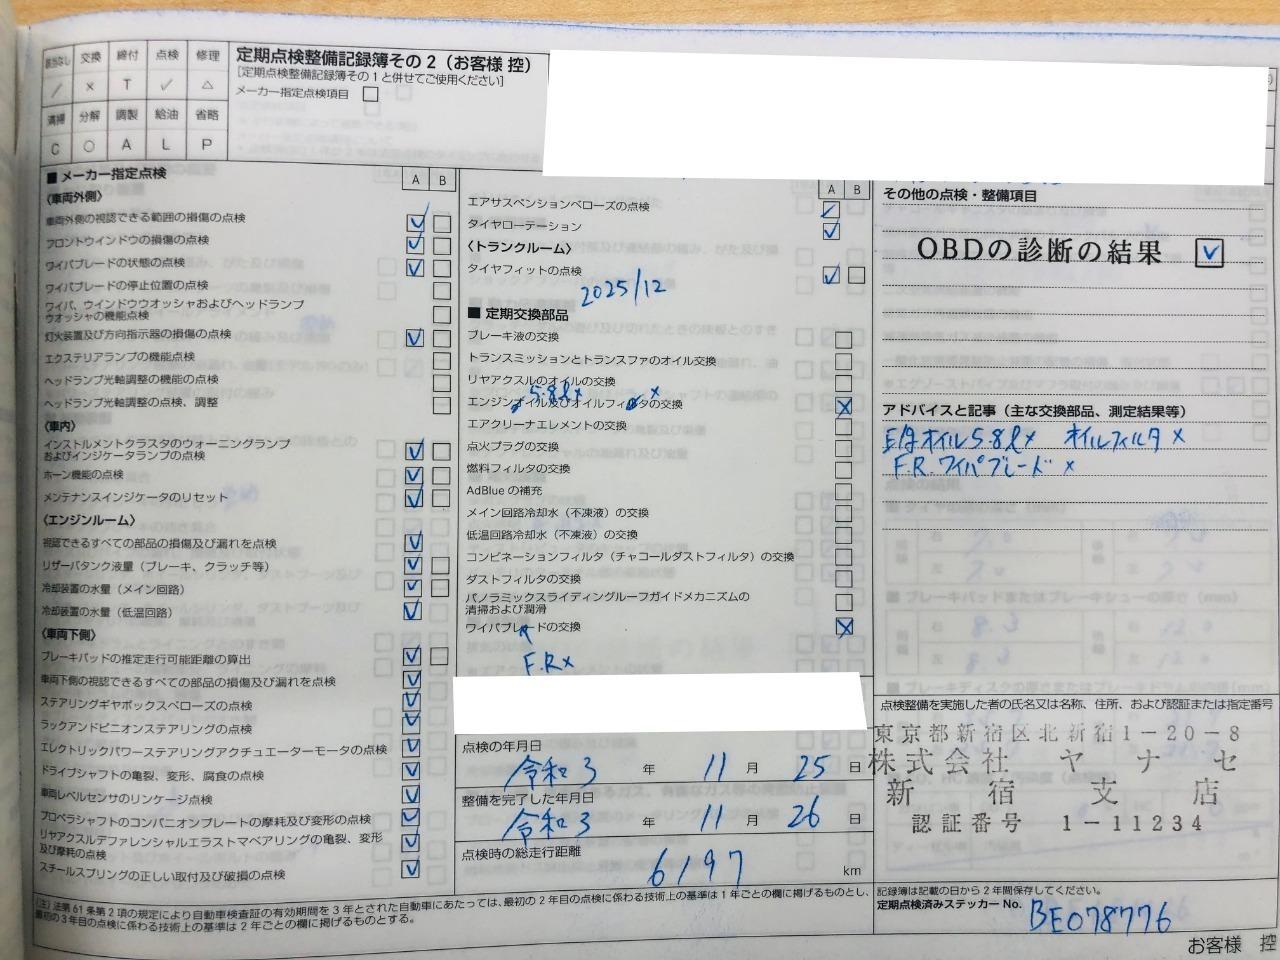 定期点検整備記録簿その2（お客様 控）
[定期点検整備記録簿その1と併せてご使用ください]
メーカー指定点検項目 □
該当なし 交換 締付 点検 修理
/ × T ✓ △
清掃 分解 調製 給油 省略
C ○ A L P
■ メーカー指定点検
A B
〈車両外側〉
車両外側の視認できる範囲の損傷の点検
フロントウインドウの損傷の点検
ワイパブレードの状態の点検
ワイパブレードの停止位置の点検
ワイパ、ウインドウウオッシャおよびヘッドランプ
ウオッシャの機能点検
灯火装置及び方向指示器の損傷の点検
エクステリアランプの機能点検
ヘッドランプ光軸調整の機能の点検
ヘッドランプ光軸調整の点検、調整
〈車内〉
インストルメントクラスタのウォーニングランプ
およびインジケータランプの点検
ホーン機能の点検
メンテナンスインジケータのリセット
〈エンジンルーム〉
視認できるすべての部品の損傷及び漏れを点検
リザーバタンク液量（ブレーキ、クラッチ等）
冷却装置の水量（メイン回路）
冷却装置の水量（低温回路）
〈車両下側〉
ブレーキパッドの推定走行可能距離の算出
車両下側の視認できるすべての部品の損傷及び漏れを点検
ステアリングギヤボックスベローズの点検
ラックアンドピニオンステアリングの点検
エレクトリックパワーステアリングアクチュエーターモータの点検
ドライブシャフトの亀裂、変形、腐食の点検
車両レベルセンサのリンケージ点検
プロペラシャフトのコンパニオンプレートの摩耗及び変形の点検
リヤアクスルデファレンシャルエラストマベアリングの亀裂、変形
及び摩耗の点検
スチールスプリングの正しい取付及び破損の点検
A B
エアサスペンションベローズの点検
タイヤローテーション
〈トランクルーム〉
タイヤフィットの点検
2025/12
■ 定期交換部品
ブレーキ液の交換
トランスミッションとトランスファのオイル交換
リヤアクスルのオイルの交換
5.8ℓ× ×
エンジンオイル及びオイルフィルタの交換
エアクリーナエレメントの交換
点火プラグの交換
燃料フィルタの交換
AdBlue の補充
メイン回路冷却水（不凍液）の交換
低温回路冷却水（不凍液）の交換
コンビネーションフィルタ（チャコールダストフィルタ）の交換
ダストフィルタの交換
パノラミックスライディングルーフガイドメカニズムの
清掃および潤滑
ワイパブレードの交換
F.R×
点検の年月日
令和3 年 11 月 25 日
整備を完了した年月日
令和3 年 11 月 26 日
点検時の総走行距離
6197 km
その他の点検・整備項目
OBDの診断の結果
アドバイスと記事（主な交換部品、測定結果等）
E/gオイル5.8ℓ× オイルフィルタ×
F.R.ワイパブレード×
点検整備を実施した者の氏名又は名称、住所、および認証または指定番号
東京都新宿区北新宿1-20-8
株式会社 ヤナセ
新宿支店
認証番号 1-11234
記録簿は記載の日から2年間保存してください。
定期点検済みステッカー No. BE078776
（注）法第61条第2項の規定により自動車検査証の有効期間を3年とされた自動車にあたっては、最初の2年目の点検に係わる技術上の基準は1年ごとの欄に掲げるものとし、
最初の3年目の点検に係わる技術上の基準は2年ごとの欄に掲げるものとする。
お客様 控